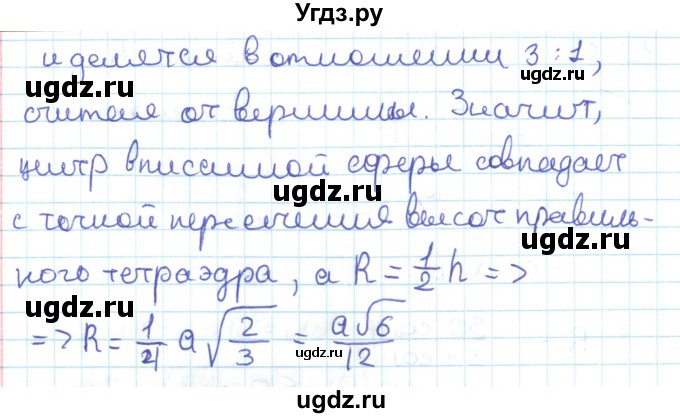 Угдз.ру
и делятся в отношении 3 : 1,
считая от вершины. Значит,
центр вписанной сферы совпадает
с точкой пересечения высот правиль-
ного тетраэдра, а R = 1/2 h =>
=> R = 1/4 a √(2/3) = a√6/12
ugdz.ru
ugdz.ru
ugdz.ru
ugdz.ru
ugdz.ru
ugdz.ru
ugdz.ru
ugdz.ru
ugdz.ru
ugdz.ru
ugdz.ru